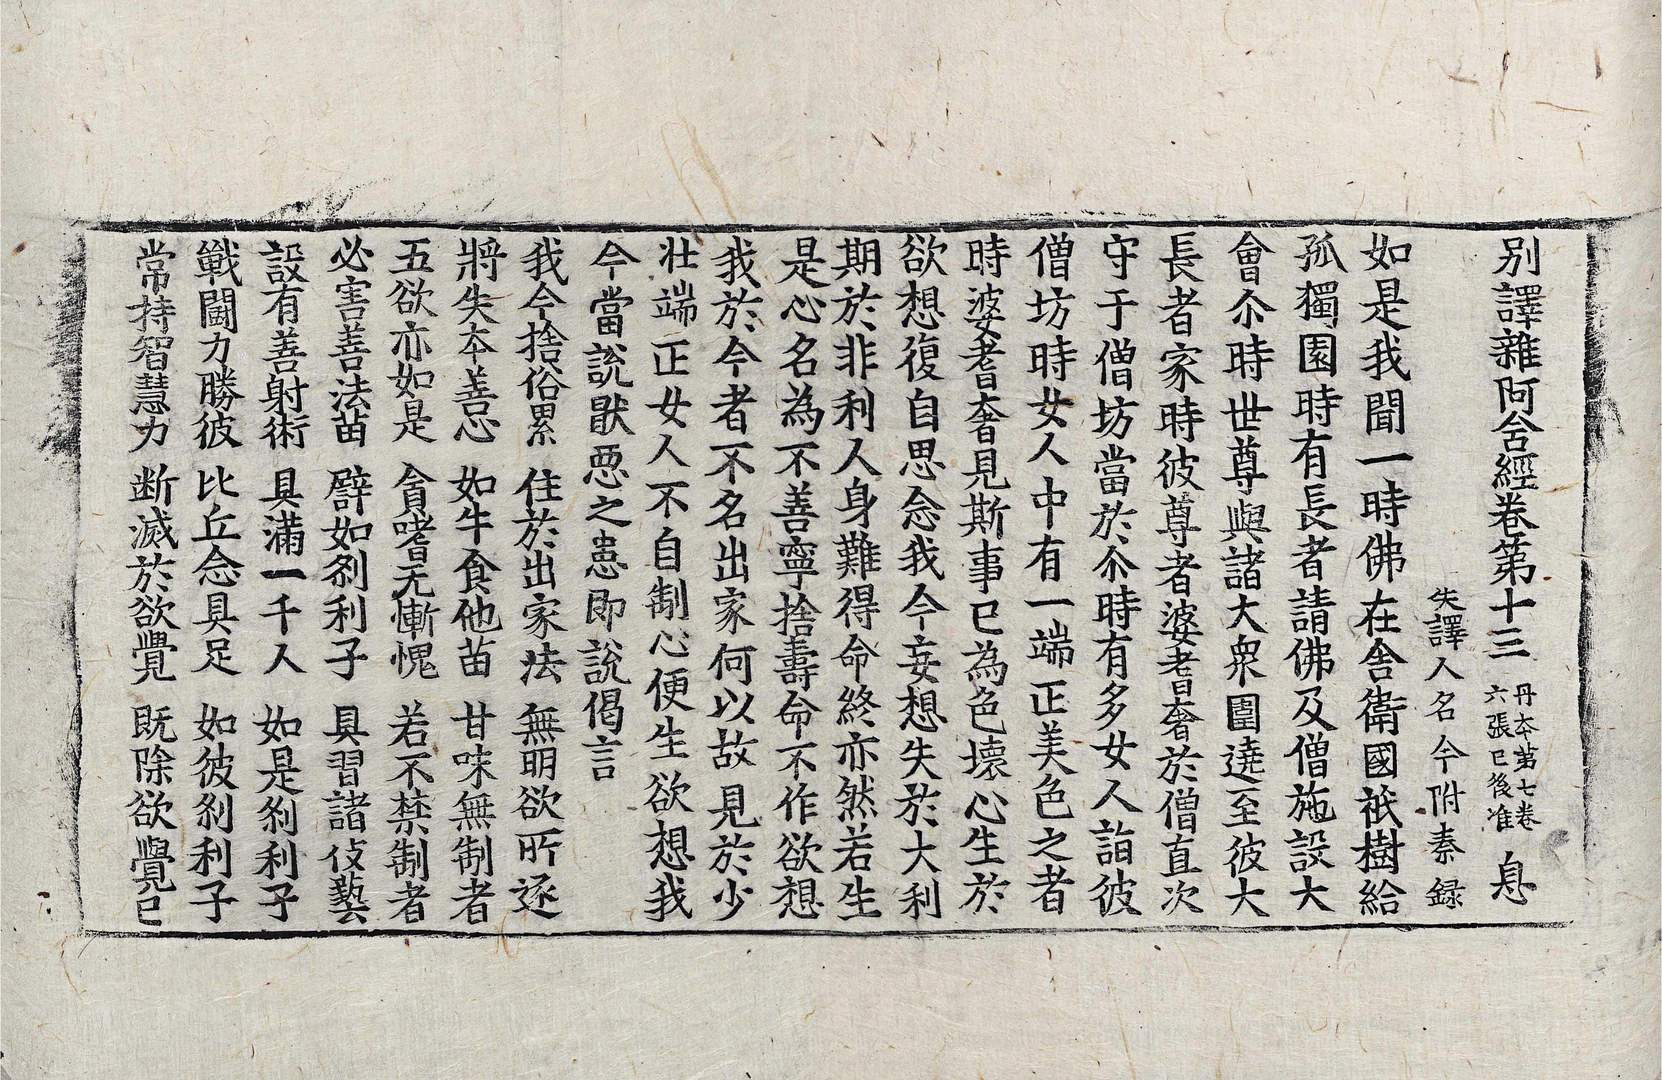 别譯雜阿含經卷第十三 丹夲第七卷六張已後准 息
失譯人名今附秦録
如是我聞一時佛在舍衛國祇樹給
孤獨園時有長者請佛及僧施設大
會尒時世尊與諸大衆圍遶至彼大
長者家時彼尊者婆耆奢於僧直次
守于僧坊當於尒時有多女人詣彼
僧坊時女人中有一端正美色之者
時婆耆奢見斯事已為色壞心生於
欲想復自思念我今妄想失於大利
期於非利人身難得命終亦然若生
是心名為不善寧捨壽命不作欲想
我於今者不名出家何以故見於少
壯端正女人不自制心便生欲想我
今當說猒惡之患即說偈言
我今捨俗累 住於出家法 無明欲所逐
將失夲善心 如牛食他苗 甘味無制者
五欲亦如是 貪嗜无慚愧 若不禁制者
必害善法苗 譬如刹利子 具習諸伎藝
設有善射術 具滿一千人 如是刹利子
戰鬪力勝彼 比丘念具足 如彼刹利子
常持智慧力 断滅於欲覺 既除欲覺已